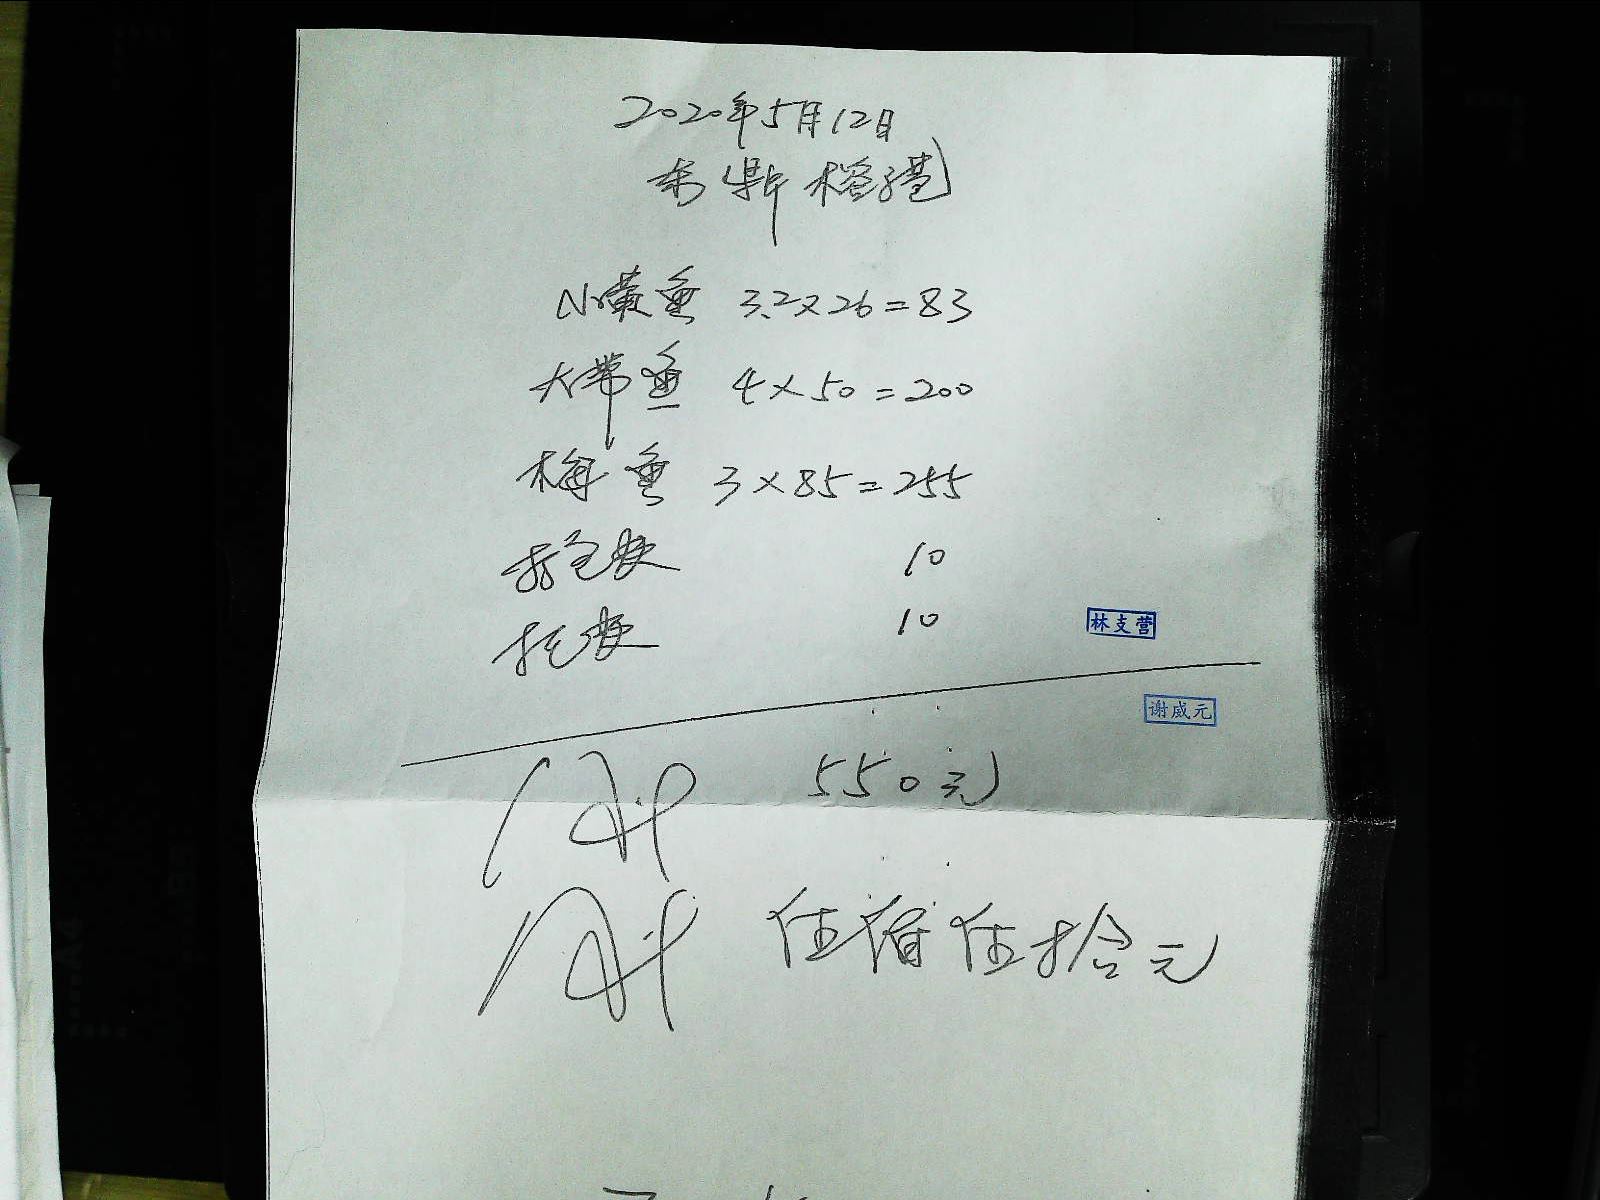 2020年5月12日
东鼎榕港
小黄鱼 3.2×26=83
大带鱼 4×50=200
梅鱼 3×85=255
打包费 10
托费 10
林支营
谢威元
550元
伍佰伍拾元